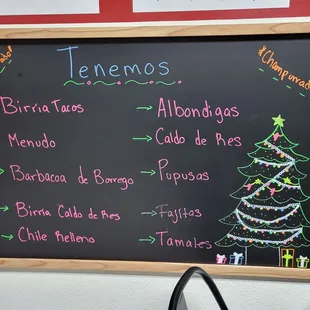 Tenemos
*Champurrado
Birria Tacos
Menudo
Barbacoa de Borrego
Birria Caldo de Res
Chile Relleno
→ Albondigas
→ Caldo de Res
→ Pupusas
→ Fajitas
→ Tamales